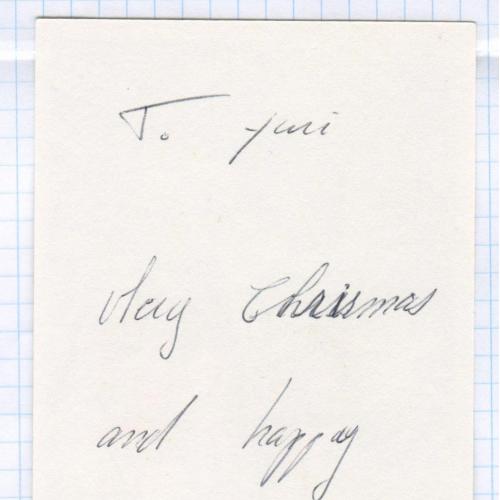 To yuri
Mery Chrismas
and happy